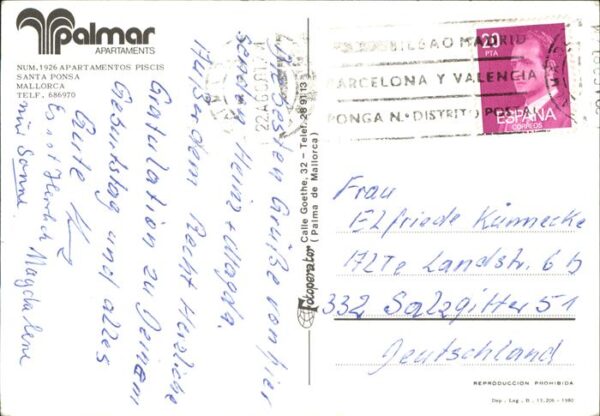 palmar
APARTAMENTS
NUM. 1926 APARTAMENTOS PISCIS
SANTA PONSA
MALLORCA
TELF. 686970
Die besten Grüße von hier
senden Heinz + Magda.
Außerdem Recht Herzliche
Gratulation zu Deinem
Geburtstag und alles
Gute
Es ist Herrlich
mit Sonne.
Magdalene
Fotoperator
Calle Goethe, 32 - Telef. 28 91 13
(Palma de Mallorca)
BILBAO MADRID
BARCELONA Y VALENCIA
PONGA N.º DISTRITO POSTAL
22 AGO
20
PTA
ESPAÑA
CORREOS
Frau
Elfriede Künnecke
Landstr. 6 b
332 Salzgitter 51
Deutschland
REPRODUCCION PROHIBIDA
Dep. Leg. B. 11.206 - 1980